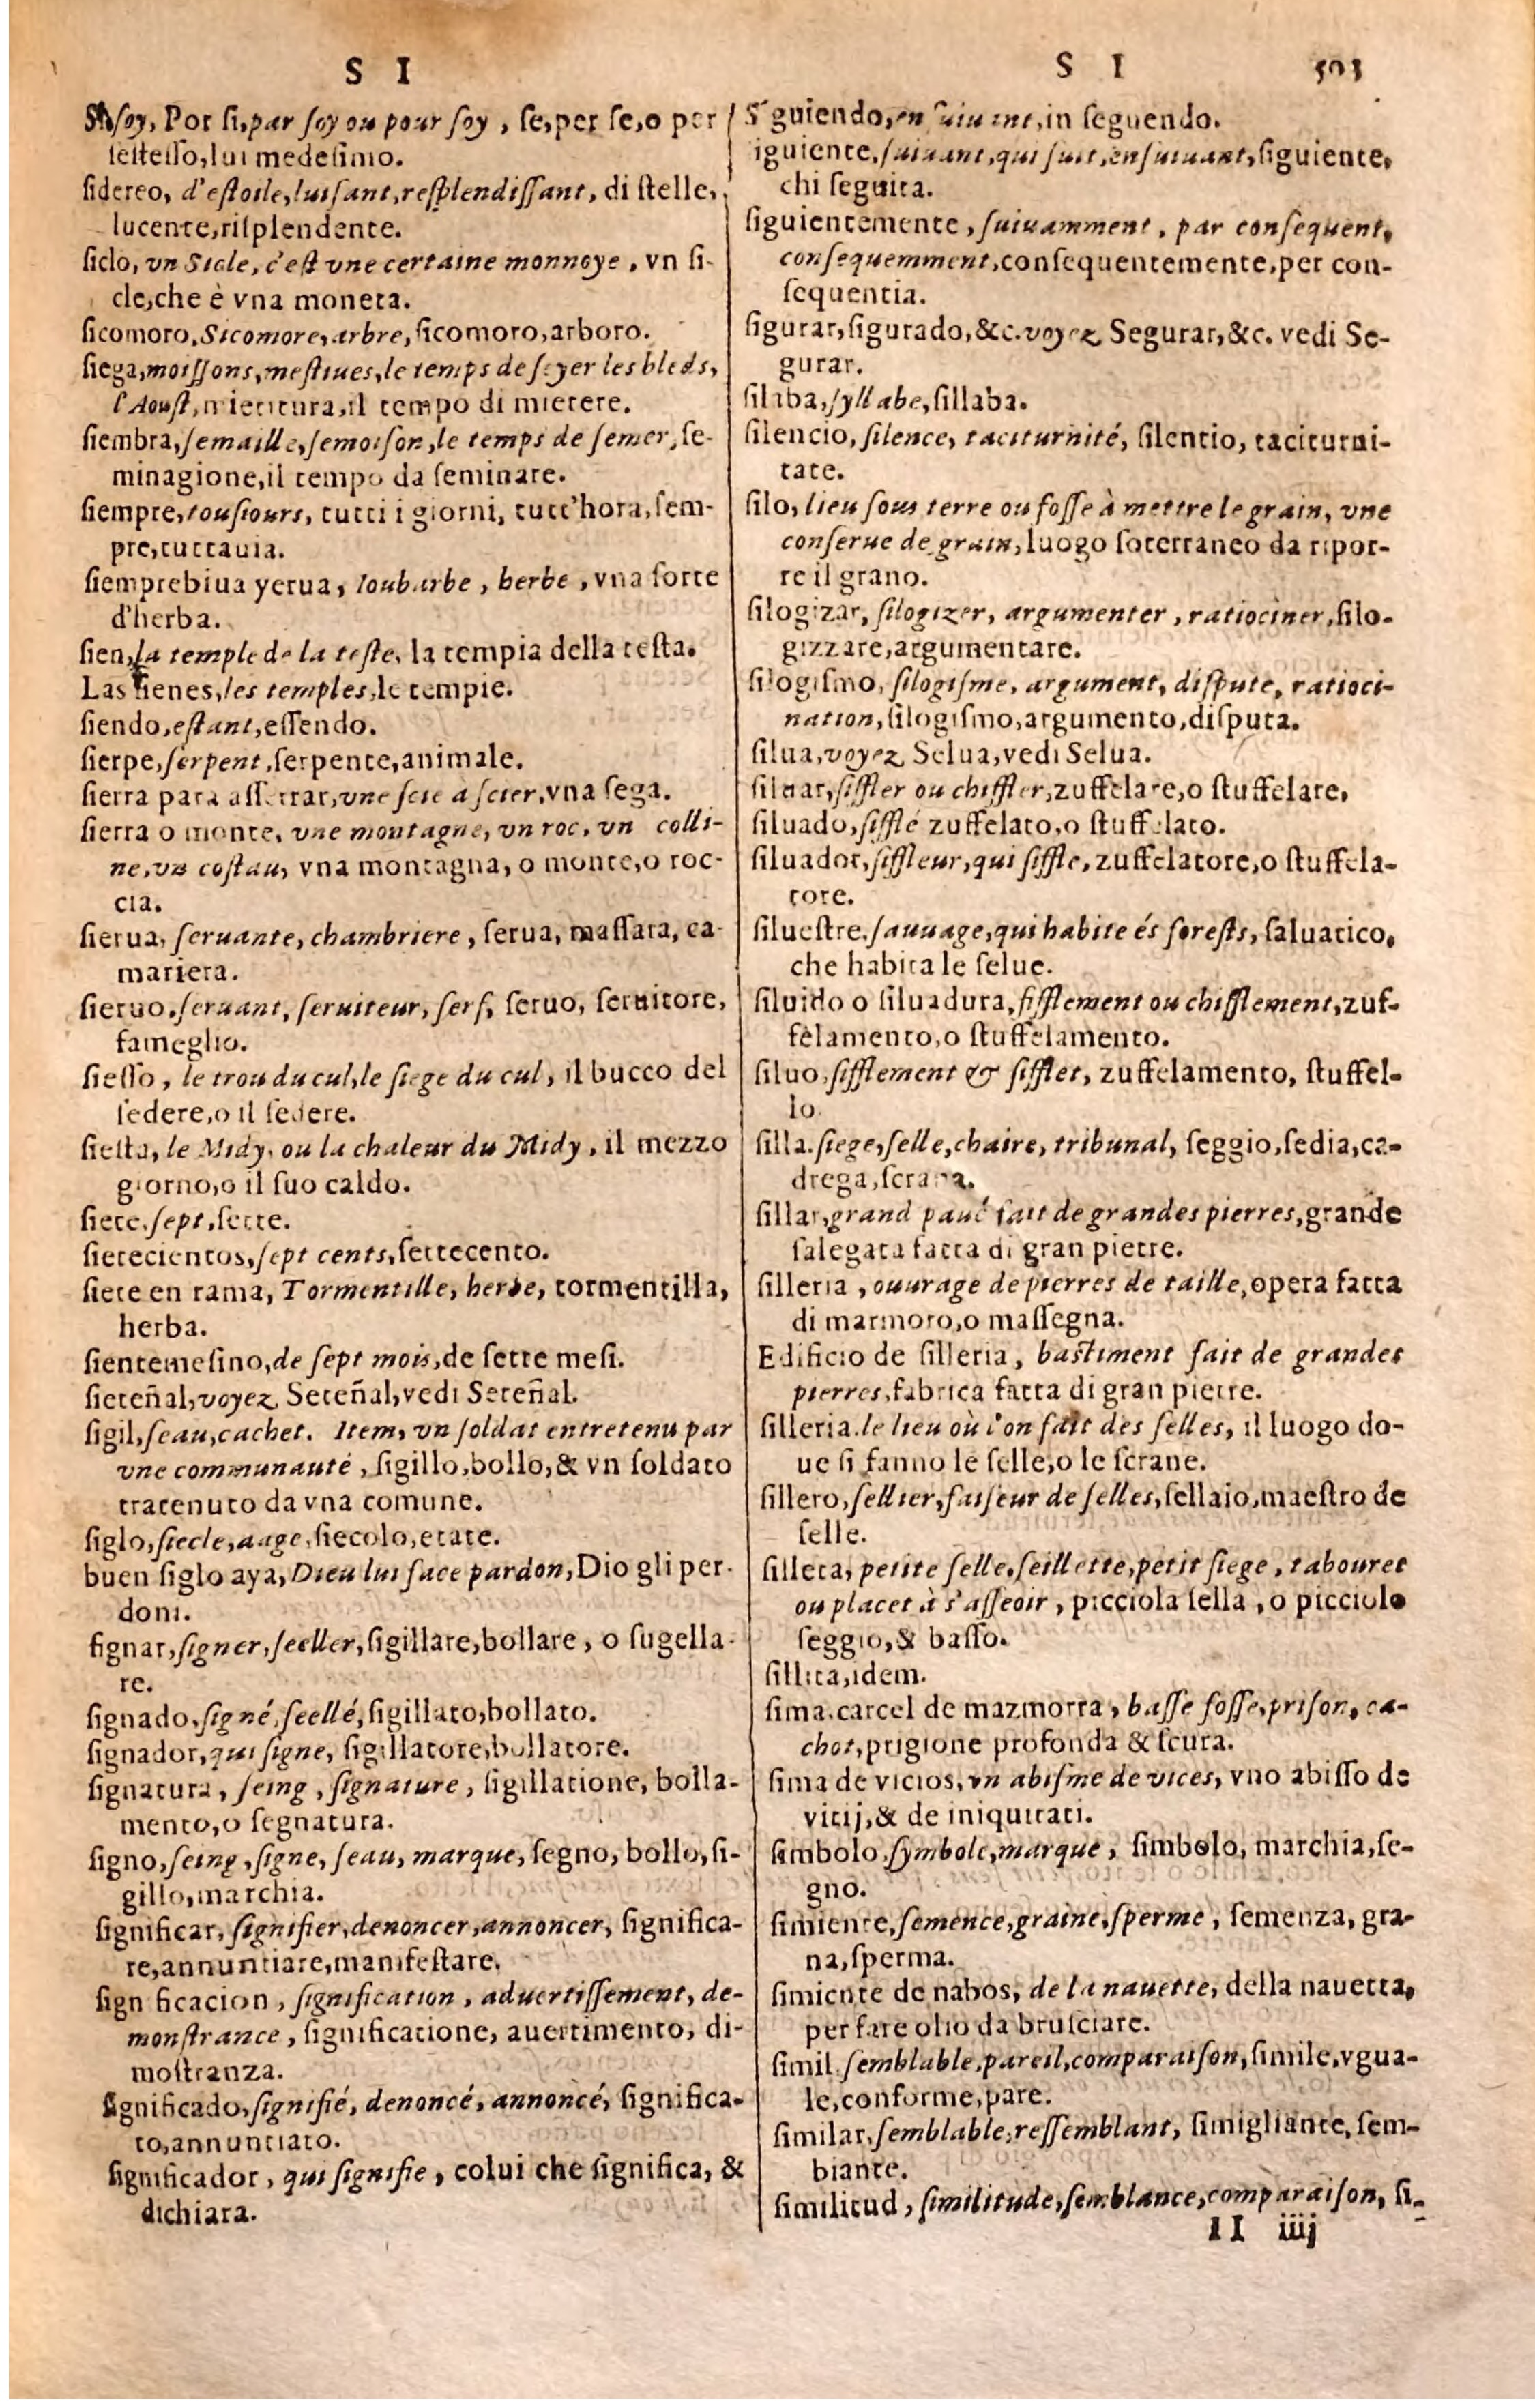 S I
S I 503
Si, soy, Por si, par soy ou pour soy, se, per se, o per
sestesso, lui medesimo.
sidereo, d'estoile, luisant, resplendissant, di stelle,
lucente, risplendente.
siclo, vn Sicle, c'est vne certaine monnoye, vn si-
cle, che è vna moneta.
sicomoro, Sicomore, arbre, sicomoro, arboro.
siega, moissons, mestiues, le temps de seyer les bleds,
l'Aoust, mietitura, il tempo di mietere.
siembra, semaille, semoison, le temps de semer, se-
minagione, il tempo da seminare.
siempre, tousiours, tutti i giorni, tutt'hora, sem-
pre, tuttauia.
siemprebiua yerua, Ioubarbe, herbe, vna sorte
d'herba.
sien, la temple de la teste, la tempia della testa.
Las sienes, les temples, le tempie.
siendo, estant, essendo.
sierpe, serpent, serpente, animale.
sierra para asserrar, vne scie à scier, vna sega.
sierra o monte, vne montagne, vn roc, vn colli-
ne, vn costau, vna montagna, o monte, o roc-
cia.
sierua, seruante, chambriere, serua, massara, ca-
mariera.
sieruo, seruant, seruiteur, serf, seruo, seruitore,
fameglio.
siesso, le trou du cul, le siege du cul, il bucco del
sedere, o il sedere.
siesta, le Midy, ou la chaleur du Midy, il mezzo
giorno, o il suo caldo.
siete, sept, sette.
sietecientos, sept cents, settecento.
siete en rama, Tormentille, herbe, tormentilla,
herba.
sientemesino, de sept mois, de sette mesi.
sieteñal, voyez Seteñal, vedi Seteñal.
sigil, seau, cachet. Item, vn soldat entretenu par
vne communauté, sigillo, bollo, & vn soldato
tratenuto da vna comune.
siglo, siecle, aage, siecolo, etate.
buen siglo aya, Dieu lui face pardon, Dio gli per-
doni.
signar, signer, seeller, sigillare, bollare, o sugella-
re.
signado, signé, seellé, sigillato, bollato.
signador, qui signe, sigillatore, bollatore.
signatura, seing, signature, sigillatione, bolla-
mento, o segnatura.
signo, seing, signe, seau, marque, segno, bollo, si-
gillo, marchia.
significar, signifier, denoncer, annoncer, significa-
re, annuntiare, manifestare.
significacion, signification, aduertissement, de-
monstrance, significatione, auertimento, di-
mostranza.
significado, signifié, denoncé, annoncé, significa-
to, annuntiato.
significador, qui signifie, colui che significa, &
dichiara.
Siguiendo, ensuiuant, in seguendo.
siguiente, suiuant, qui suit, ensuiuant, siguiente,
chi seguita.
siguientemente, suiuamment, par consequent,
consequemment, consequentemente, per con-
sequentia.
sigurar, sigurado, &c. voyez Segurar, &c. vedi Se-
gurar.
silaba, syllabe, sillaba.
silencio, silence, taciturnité, silentio, taciturni-
tate.
silo, lieu sous terre ou fosse à mettre le grain, vne
conserue de grain, luogo soterraneo da ripor-
re il grano.
silogizar, silogizer, argumenter, ratiociner, silo-
gizzare, argumentare.
silogismo, silogisme, argument, dispute, ratioci-
nation, silogismo, argumento, disputa.
silua, voyez Selua, vedi Selua.
siluar, siffler ou chiffler, zuffelare, o stuffelare,
siluado, sifflé zuffelato, o stuffelato.
siluador, siffleur, qui siffle, zuffelatore, o stuffela-
tore.
siluestre, sauuage, qui habite és forests, saluatico,
che habita le selue.
siluido o siluadura, sifflement ou chifflement, zuf-
felamento, o stuffelamento.
siluo, sifflement & sifflet, zuffelamento, stuffel-
lo.
silla, siege, selle, chaire, tribunal, seggio, sedia, ca-
drega, scrana.
sillar, grand paué fait de grandes pierres, grande
salegata fatta di gran pietre.
silleria, ouurage de pierres de taille, opera fatta
di marmoro, o massegna.
Edificio de silleria, bastiment fait de grandes
pierres, fabrica fatta di gran pietre.
silleria, le lieu où l'on fait des selles, il luogo do-
ue si fanno le selle, o le scrane.
sillero, sellier, faiseur de selles, sellaio, maestro de
selle.
silleta, petite selle, seillette, petit siege, tabouret
ou placet à s'asseoir, picciola sella, o picciolo
seggio, & basso.
sillita, idem.
sima, carcel de mazmorra, basse fosse, prison, ca-
chot, prigione profonda & scura.
sima de vicios, vn abisme de vices, vno abisso de
vitij, & de iniquitati.
simbolo, symbole, marque, simbolo, marchia, se-
gno.
simiente, semence, graine, sperme, semenza, gra-
na, sperma.
simiente de nabos, de la nauette, della nauetta,
per fare olio da brusciare.
simil, semblable, pareil, comparaison, simile, vgua-
le, conforme, pare.
similar, semblable, ressemblant, simigliante, sem-
biante.
similitud, similitude, semblance, comparaison, si-
II iiij